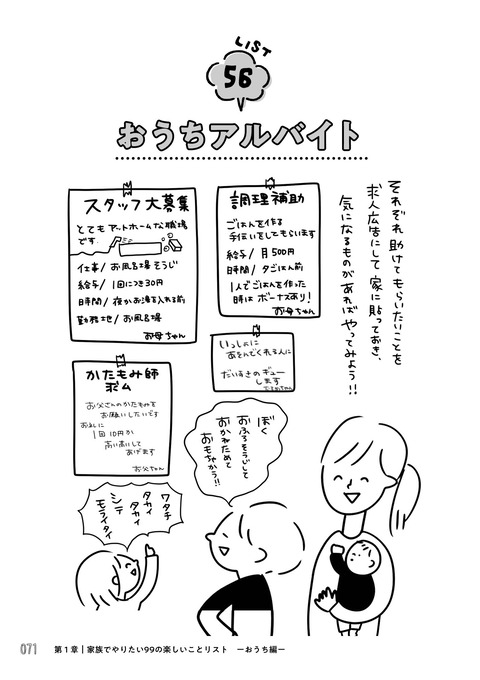 LIST
56
おうちアルバイト
それぞれ助けてもらいたいことを
求人広告にして家に貼っておき、
気になるものがあればやってみよう!!
スタッフ大募集
とてもアットホームな職場
です。
仕事/お風呂場そうじ
給与/1回につき30円
時間/夜かお湯を入れる前
勤務地/お風呂場
お母ちゃん
調理補助
ごはんを作る
手伝いをしてもらいます
給与/月500円
時間/夕ごはん前
1人でごはんを作った
時はボーナスあり!
お母ちゃん
いっしょに
あそんでくれる人に
だいすきのギュー
します
かたもみ師
求ム
お父さんのかたもみを
お願いしたいです
お礼に
1回10円か
高い高いして
あげます
お父ちゃん
ぼく
おふろそうじして
おかねためて
おもちゃかう!!
ワタチ
タカイ
タカイ
シテ
モライタイ
071
第1章|家族でやりたい99の楽しいことリスト ーおうち編ー